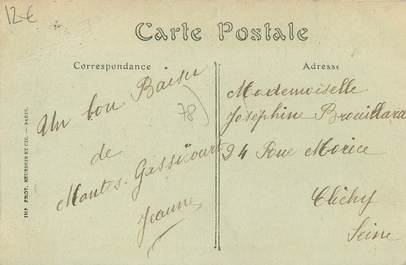 12€
Carte Postale
Correspondance
Adresse
Un bon Baiser
78)
de
Mantes. Gassicourt
Jeanne
Mademoiselle
Joséphine Brouillard
24 Rue Morice
Clichy
Seine
IMP. PHOT. NEURDEIN ET CIE. — PARIS.